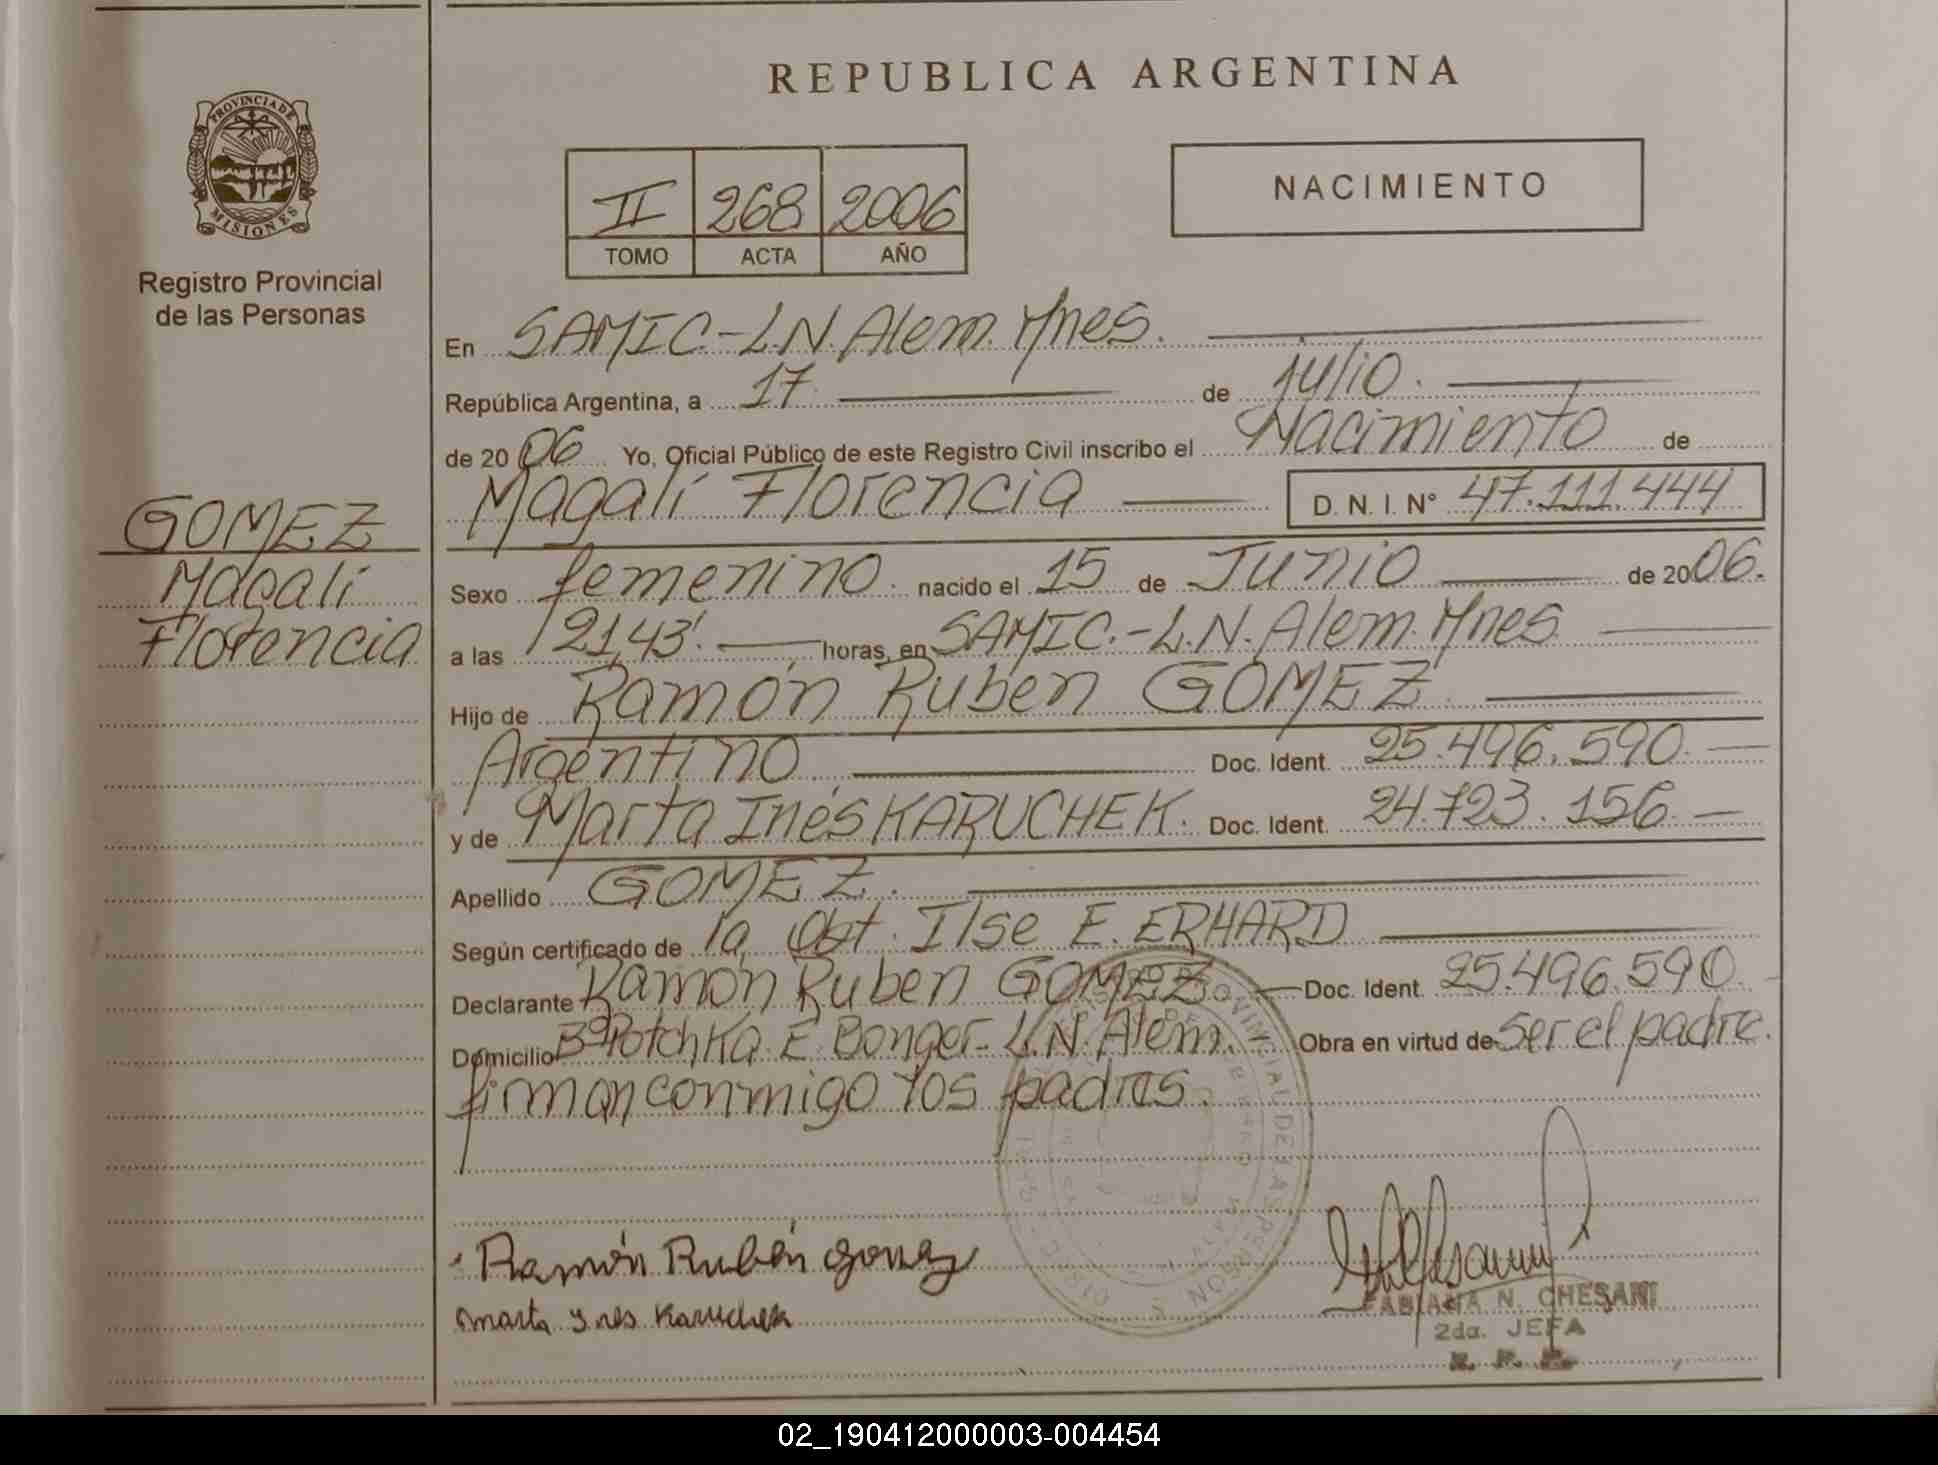 REPUBLICA ARGENTINA
PROVINCIA DE MISIONES
Registro Provincial
de las Personas
II 268 2006
TOMO ACTA AÑO
NACIMIENTO
GOMEZ
Magalí
Florencia
En SAMIC.-L.N. Alem. Mnes.
República Argentina, a 17 de julio.
de 2006 Yo, Oficial Público de este Registro Civil inscribo el Nacimiento de
Magalí Florencia D. N. I. N° 47.111.444
Sexo femenino. nacido el 15 de Junio de 2006.
a las 21,43'. horas, en SAMIC.-L.N. Alem. Mnes
Hijo de Ramón Ruben GOMEZ
Argentino Doc. Ident. 25.496.590.
y de Marta Inés KARUCHEK. Doc. Ident. 24.723.156
Apellido GOMEZ.
Según certificado de la Obt. Ilse E. ERHARD
Declarante Ramón Ruben GOMEZ Doc. Ident. 25.496.590.
Domicilio B° Potchka E. Bonger- L.N. Alem. Obra en virtud de ser el padre.
firman conmigo los padres.
Ramón Rubén Gomez
Marta Ynes Karuchek
FABIANA N. CHESANI
2da. JEFA
R. P. P.
02_190412000003-004454